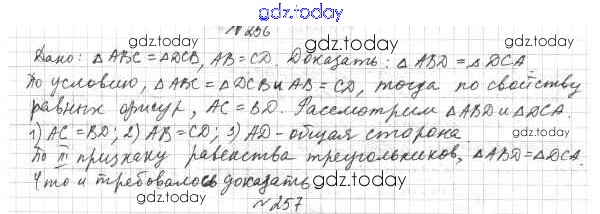 gdz.today
№256
gdz.today gdz.today
Дано: △ABC = △DCB, AB = CD. Доказать: △ABD = △DCA.
По условию, △ABC = △DCB и AB = CD, тогда по свойству
gdz.today gdz.today
равных фигур, AC = BD. Рассмотрим △ABD и △DCA.
1) AC = BD; 2) AB = CD; 3) AD - общая сторона
gdz.today gdz.today
По III признаку равенства треугольников, △ABD = △DCA.
Что и требовалось доказать
gdz.today gdz.today
№257